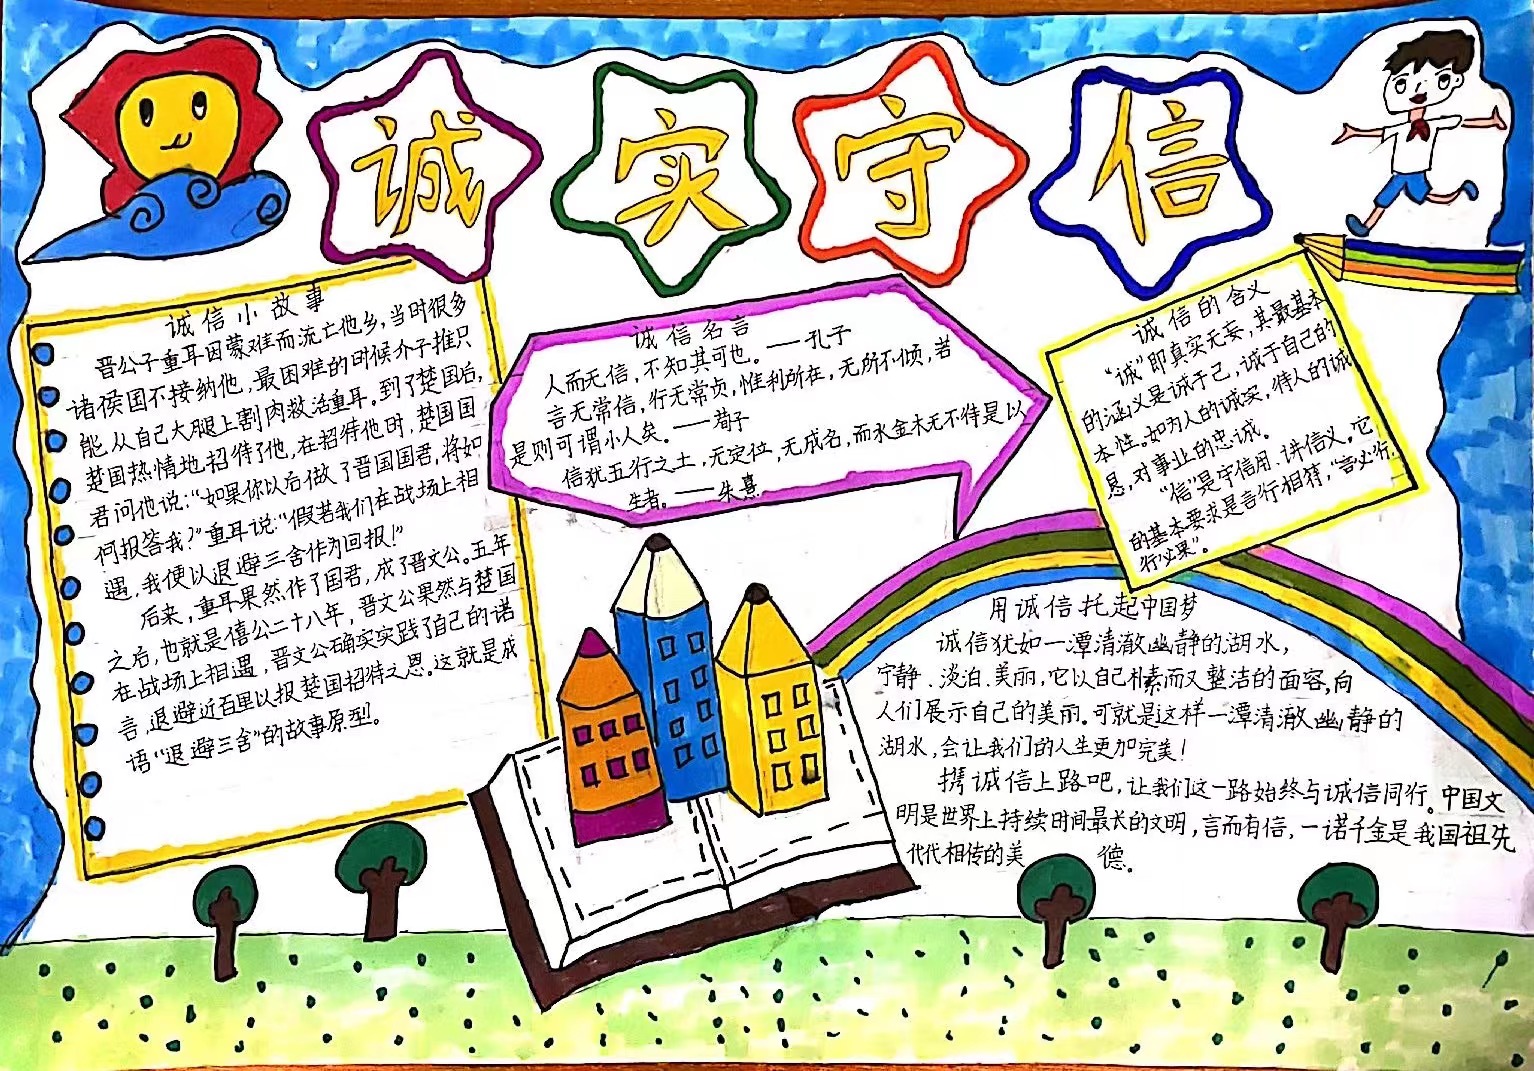 诚实守信
诚信小故事
晋公子重耳因蒙难而流亡他乡,当时很多
诸侯国不接纳他,最困难的时候介子推只
能从自己大腿上割肉救活重耳。到了楚国后,
楚国热情地招待了他,在招待他时,楚国国
君问他说:“如果你以后做了晋国国君,将如
何报答我?”重耳说:“假若我们在战场上相
遇,我便以退避三舍作为回报!”
后来,重耳果然作了国君,成了晋文公。五年
之后,也就是僖公二十八年,晋文公果然与楚国
在战场上相遇,晋文公确实实践了自己的诺
言,退避近百里以报楚国招待之恩。这就是成
语“退避三舍”的故事原型。
诚信名言
人而无信,不知其可也。——孔子
言无常信,行无常贞,惟利所在,无所不倾,若
是则可谓小人矣。——荀子
信犹五行之土,无定位,无成名,而水金木无不待是以
生者。——朱熹
诚信的含义
“诚”即真实无妄,其最基本
的涵义是诚于己,诚于自己的
本性。如为人的诚实,待人的诚
恳,对事业的忠诚。
“信”是守信用、讲信义。它
的基本要求是言行相符,“言必行,
行必果”。
用诚信托起中国梦
诚信犹如一潭清澈幽静的湖水,
宁静、淡泊、美丽,它以自己朴素而又整洁的面容,向
人们展示自己的美丽。可就是这样一潭清澈幽静的
湖水,会让我们的人生更加完美!
携诚信上路吧,让我们这一路始终与诚信同行。中国文
明是世界上持续时间最长的文明,言而有信,一诺千金是我国祖先
代代相传的美德。